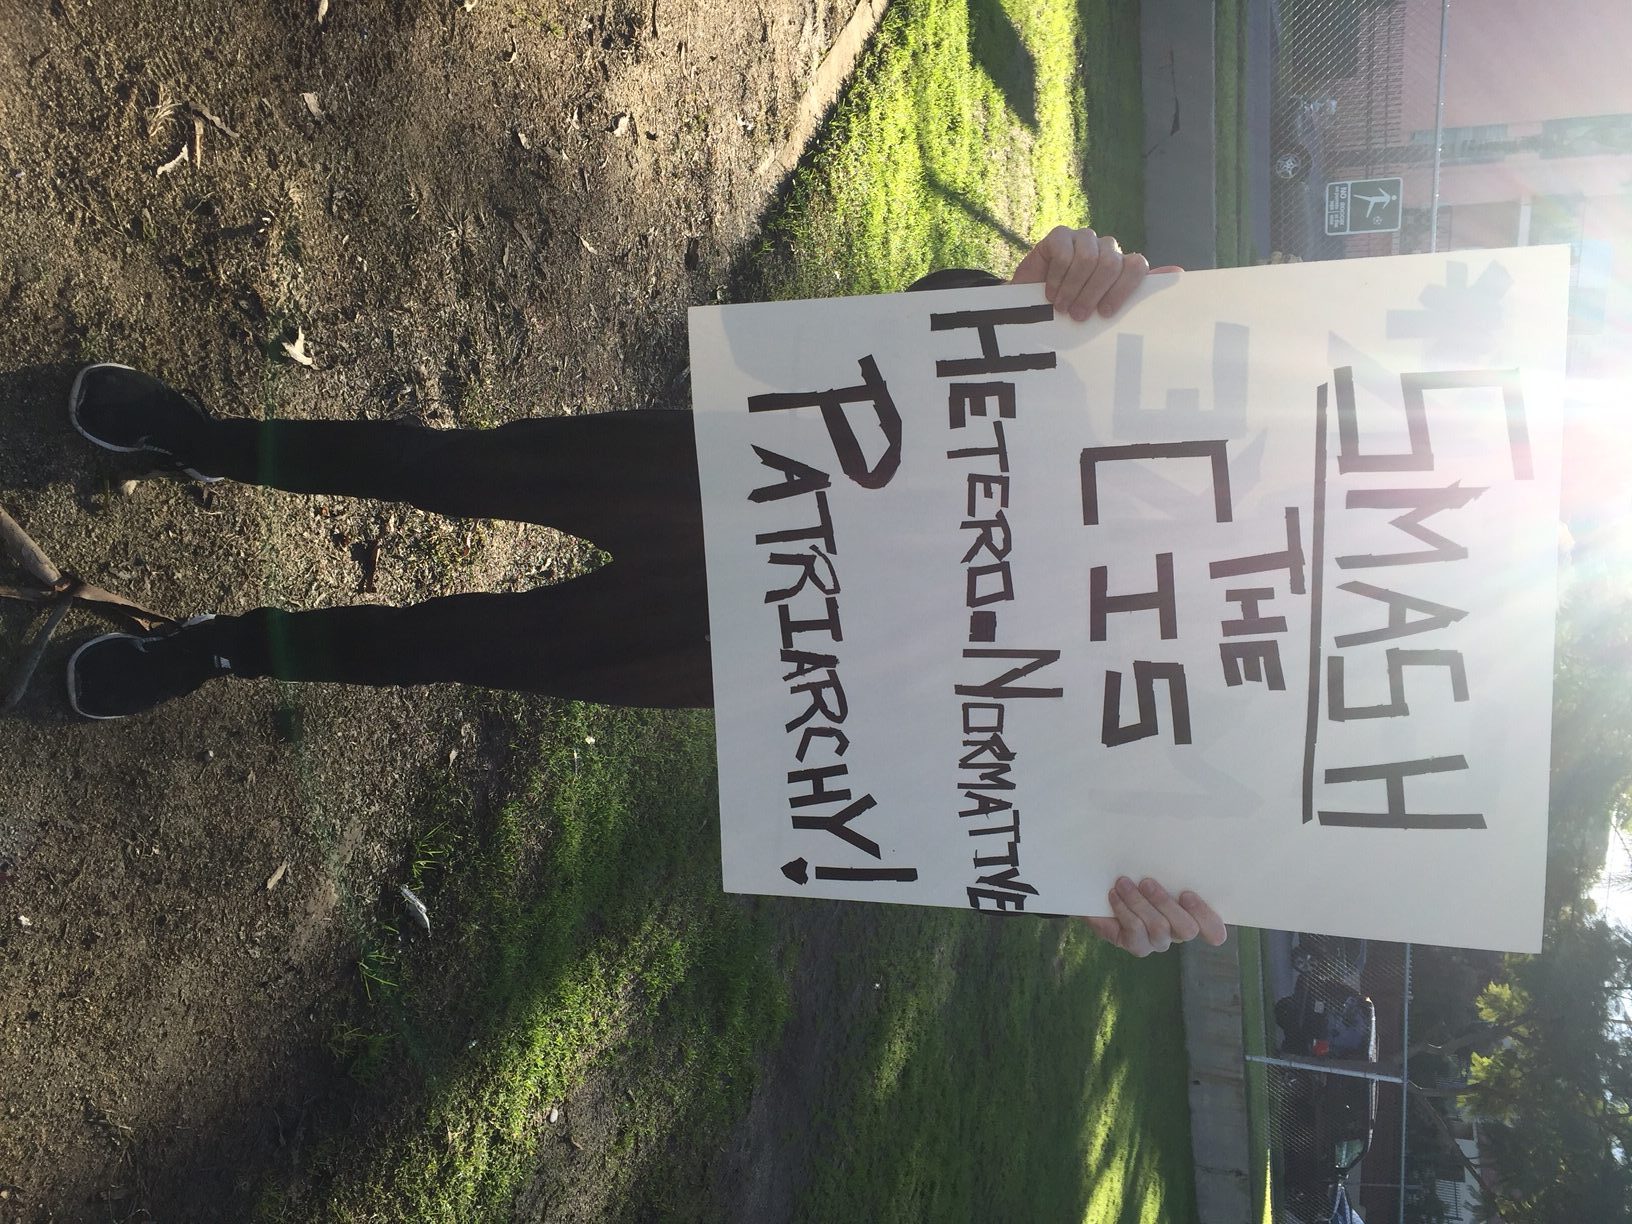 SMASH
THE
CIS
HETERO-NORMATIVE
PATRIARCHY!